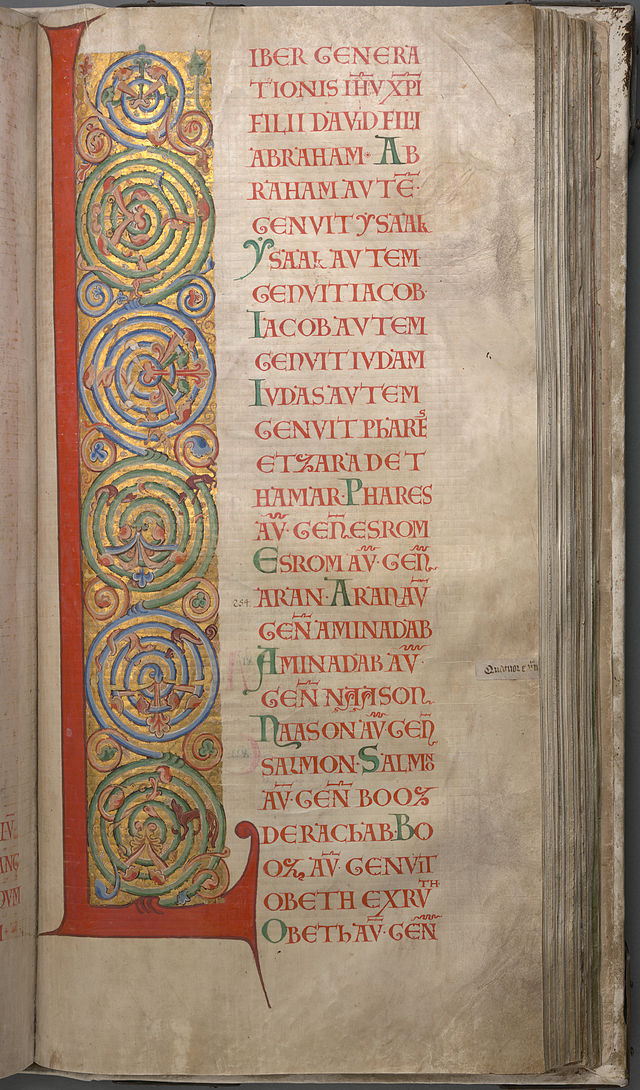 LIBER GENERA
TIONIS IHV XPI
FILII DAVID FILII
ABRAHAM· AB
RAHAM AVTE
GENVIT YSAAk
YSAAk AVTEM
GENVIT IACOB·
IACOB AVTEM
GENVIT IVDAM
IVDAS AVTEM
GENVIT PhARES
ET ZARA DE T
HAMAR· PHARES
AV· GEN ESROM
ESROM AV· GEN
254
ARAN· ARAN AV
GEN AMINADAB
AMINADAB AV·
GEN NAASON
NAASON AV GEN
SALMON· SALMON
AV· GEN BOOZ
DE RAChAB· BO
OZ AV GENVIT
OBETH EX RVTH
OBETh AV· GEN